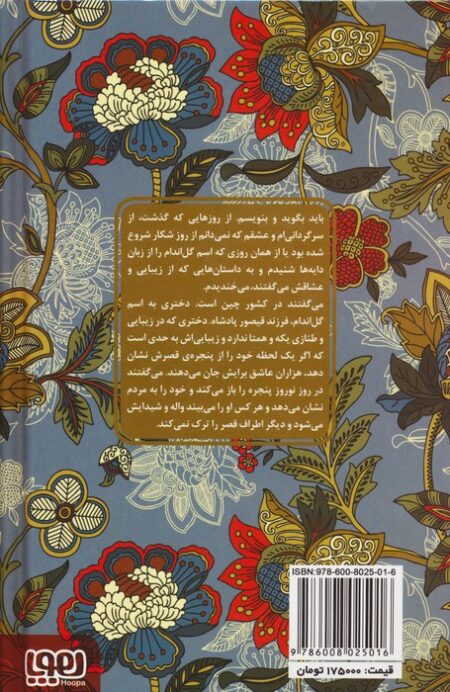 باید بگوید و بنویسم. از روزهایی که گذشت، از
سرگردانی‌ام و عشقم که نمی‌دانم از روز شکار شروع
شده بود یا از همان روزی که اسم گل‌اندام را از زبان
دایه‌ها شنیدیم و به داستان‌هایی که از زیبایی و
عشاقش می‌گفتند، می‌خندیدم.
می‌گفتند در کشور چین است. دختری به اسم
گل‌اندام، فرزند قیصور پادشاه. دختری که در زیبایی
و طنازی یکه و همتا ندارد و زیبایی‌اش به حدی است
که اگر یک لحظه خود را از پنجره‌ی قصرش نشان
دهد، هزاران عاشق برایش جان می‌دهند. می‌گفتند
در روز نوروز پنجره را باز می‌کند و خود را به مردم
نشان می‌دهد و هر کس او را می‌بیند واله و شیدایش
می‌شود و دیگر اطراف قصر را ترک نمی‌کند.
ISBN:978-600-8025-01-6
9 786008 025016
قیمت: ۱۷۵۰۰۰ تومان
هوپا
Hoopa